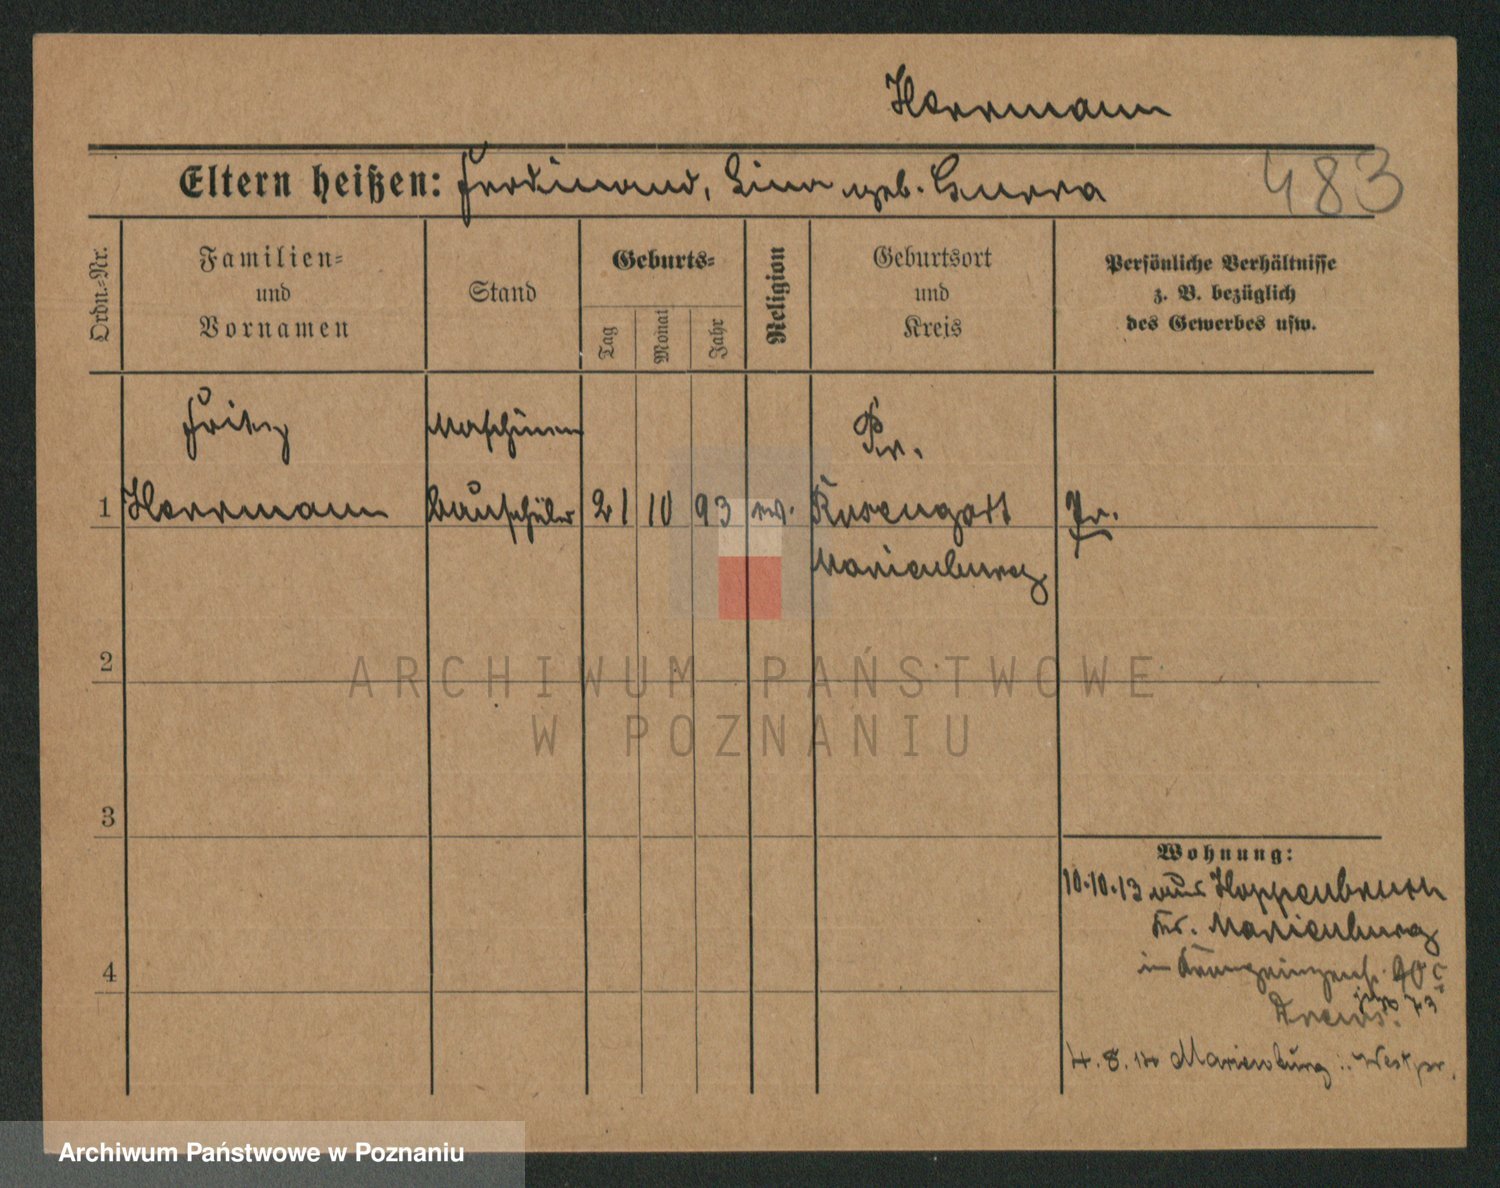 Herrmann
Eltern heißen: Ferdinand, Lina geb.
483
Ordn.-Nr.
Familien-
und
Vornamen
Stand
Geburts-
Tag
Monat
Jahr
Religion
Geburtsort
und
Kreis
Persönliche Verhältnisse
z. B. bezüglich
des Gewerbes usw.
Fritz
Maschinen
Pr.
1 Herrmann
bauschüler
21 10 93 ev.
Rosengart
Pr.
Marienburg
2
3
4
Wohnung:
10.10.13 aus Hoppenbruch
Kr. Marienburg
in Kronprinzenst.
Drews.
4. 8. Marienburg Westpr.
ARCHIWUM PAŃSTWOWE
W POZNANIU
Archiwum Państwowe w Poznaniu